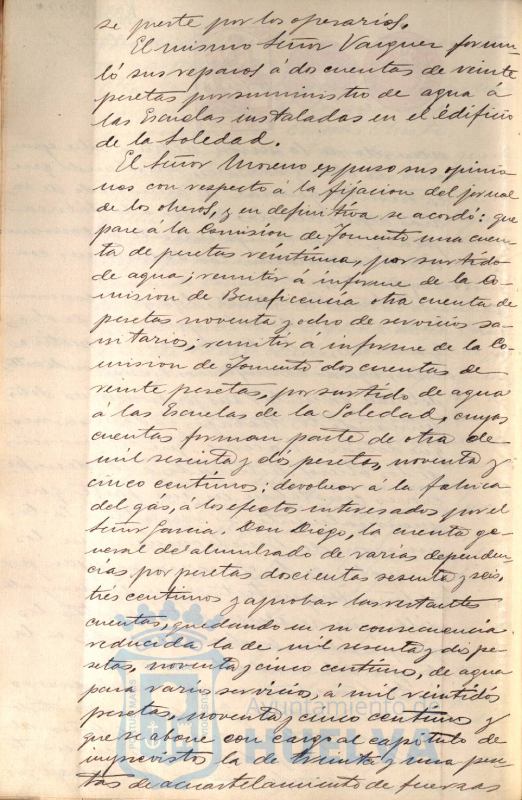 se preste por los operarios.
El mismo Señor Vazquez formu-
ló sus reparos á dos cuentas de veinte
pesetas por suministro de agua á
las Escuelas instaladas en el édificio
de la Soledad.
El Señor Moreno expuso sus opinio
nes con respecto á la fijacion del jornal
de los obreros, y en definitiva se acordó: que
pase á la Comision de Fomento una cuen
ta de pesetas veintiuna, por surtido
de agua; remitir á informe de la Co-
mision de Beneficencia otra cuenta de
pesetas noventa y ocho de servicios sa-
nitarios; remitir á informe de la Co-
mision de Fomento dos cuentas de
veinte pesetas, por surtido de agua
á las Escuelas de la Soledad, cuyas
cuentas forman parte de otra de
mil sesenta y dos pesetas, noventa y
cinco centimos; devolver á la fabrica
del gás, á los efectos interesados por el
Señor Garcia, Don Diego, la cuenta ge-
neral del alumbrado de varias dependen-
cias, por pesetas doscientas sesenta y seis,
tres centimos y aprobar las restantes
cuentas, quedando en su consecuencia
reducida la de mil sesenta y dos pe-
setas, noventa y cinco centimos, de agua
para varios servicios, á mil veintidós
pesetas, noventa y cinco centimos y
que se abone con cargo al capitulo de
imprevistos la de treinta y una pese
tas de acuartelamiento de fuerzas
Ayuntamiento de
HUELVA